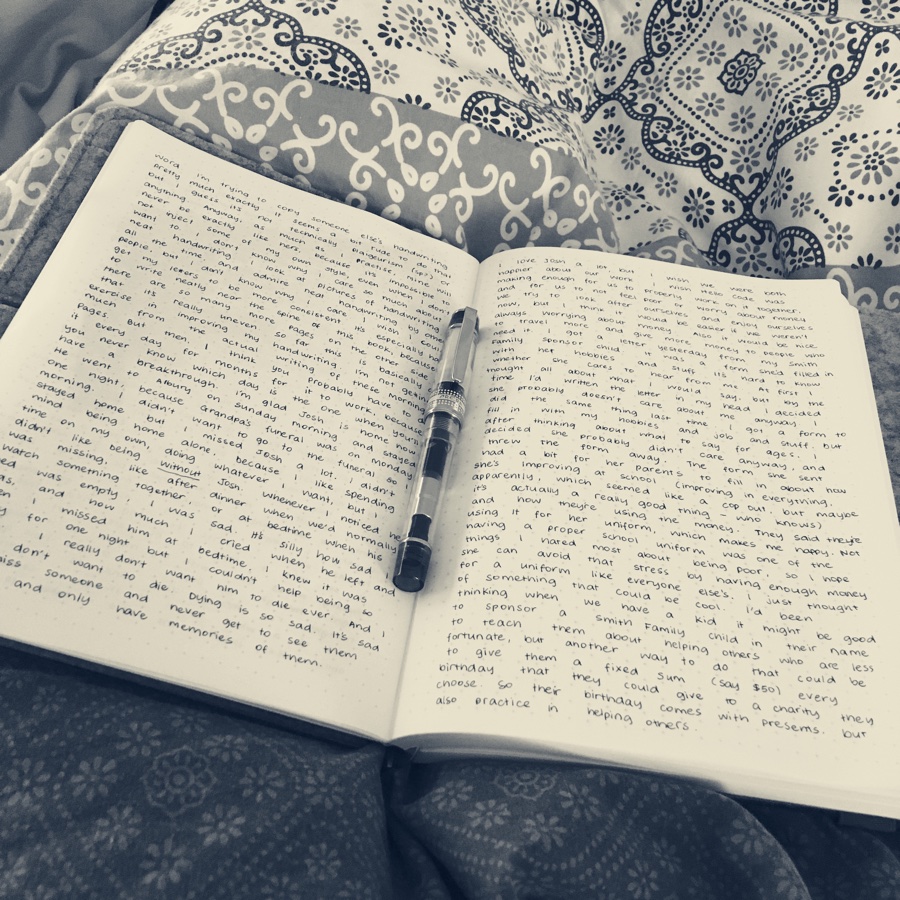 word I'm trying to copy someone else's handwriting
pretty much exactly. It seems a bit rude to do
but I guess it's not technically plagiarism
anything. Anyway, here I practise. It's impossible to
never be exactly as much like hers even when I don't
not. Yuei some of my own style, or pictures of
want to. I don't know why I care so much about
neat handwriting. I look at handwriting by
all the time, and admire neat handwriting
people, but I don't like my own. I wish I could
get my letters to be more consistent. It's especially
to write neatly near the spine of this book, because
there are so many more pages on the
that it's really uneven. So far this is the
exercise from improving my handwriting, I'm not
much the actual writing of these
pages. But then, I think you probably have to
it every day for months for it to work, because
you never know which day is the one when you'll
have a breakthrough. I'm glad Josh is home now.
He went to Albury on Sunday and stayed
one night, because Grandpa's funeral was on Monday
morning. I didn't want to go to the funeral so I
stayed home but I missed Josh a lot. I didn't
mind being home alone, because I like spending
time on my own, doing whatever I want, but I
didn't like being without Josh. Whenever I noticed he
was missing, like after dinner when we'd normally
watch something together, or at bedtime when his
was empty, I was sad. It's silly how sad
and how much I cried when he left and
I missed him at bedtime. I knew it was
for one night but I couldn't help being so
I really don't want him to die ever. And I
don't want to die. Dying is so sad. It's sad
miss someone and never get to see them
and only have memories of them.
love Josh a lot but I wish we were both
happier about our work. I wish these code was
making enough for us to properly work on it together,
and for us to not feel poor or worry about money.
We try to look after ourselves and enjoy ourselves
now, but I think it would be easier if we weren't
always worrying about money. Also it would be nice
to travel more and give more money to people who
need it. I got a letter yesterday from my Smith
Family sponsor child. It was a form she'd filled in
with her hobbies and stuff. It's hard to know
whether she cares to hear from me. At first I
thought all about what I would say, but by the
time I'd written the letter in my head I decided
she probably doesn't care about me anyway. I
did the same thing last time I got a form to
fill in with my hobbies and job and stuff, but
after thinking about what to say for ages, I
decided she probably didn't care anyway, and
threw the form away. The form she sent
had a bit for her parents to fill in about how
she's improving at school (improving in everything,
apparently, which seemed like a cop out, but maybe
it's actually a really good thing - who knows)
and how they're using the money. They said they're
using it for her uniform, which makes me happy. Not
having a proper school uniform was one of the
things I hated most about being poor, so I hope
she can avoid that stress by having enough money
for a uniform like everyone else's. I just thought
of something that could be cool. I'd been
thinking when we have a kid it might be good
to sponsor a Smith Family child in their name
to teach them about helping others who are less
fortunate, but another way to do that could be
to give them a fixed sum (say $50) every
birthday that they could give to a charity they
choose. So their birthday comes with presents, but
also practice in helping others.